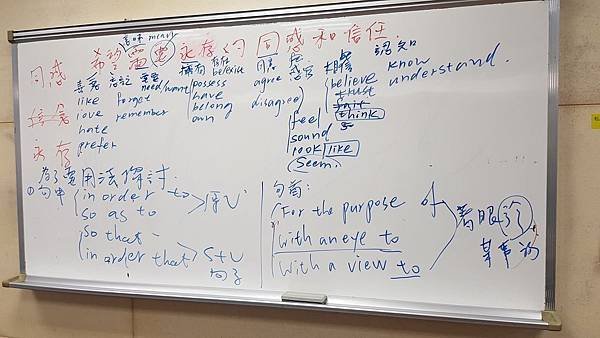 意味 mean
希望 需要 永存的 同感和信任.
同感
信念
永存
喜惡 忘記 需要 擁有 存在 同意 感官 相信 認知
like forget need/want possess belong agree believe know understand.
love remember have disagree trust
hate belong feel think
prefer own sound
look like
Seem
為了要用法探討.
① 句中
in order to
so as to
原V
so that
in order that
S+V
句子
句首:
For the purpose of
with an eye to
with a view to
着眼於
某事物